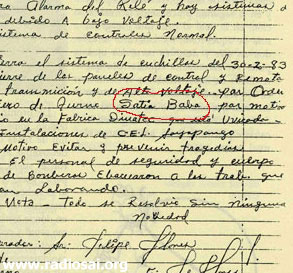 ra Alarma del Relé y hoy sistemas d
debido A bajo Voltaje.
stema de controles Normal.
erra el sistema de cuchillos del 30-2-83
ierre de los paneles de control y Remota
transmición y de Alto Voltaje. por Orde
ero de Guerre Satia Baba por motivo
io en la Fabrica Diuster
nstalaciones de CEL Soyapango
Motivo Evitar y prevenir tragedias
El personal de seguridad y cuerpo
de Bomberos Ebacuaron a los trab. que
an Laborando.
Nota - Todo se Resolvio sin Ninguna
Nobedad
erador: Sr. Felipe Flores
www.radiosai.org